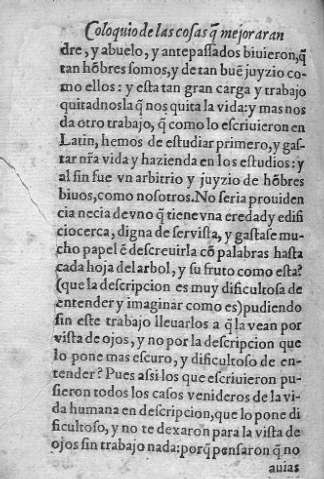 Coloquio de las cosas q̃ mejoraran
dre, y abuelo, y antepaſſados biuieron, q̃
tan hõbres ſomos, y de tan buẽ juyzio co-
mo ellos: y eſta tan gran carga y trabajo
quitadnosla q̃ nos quita la vida: y mas nos
da otro trabajo, q̃ como lo eſcriuieron en
Latin, hemos de eſtudiar primero, y gaſ-
tar nr̃a vida y hazienda en los eſtudios: y
al fin fue vn arbitrio y juyzio de hõbres
biuos, como noſotros. No ſeria prouiden
cia necia de vno q̃ tiene vna eredad y edifi
cio cerca, digna de ſer viſta, y gaſtaſe mu-
cho papel ẽ deſcreuirla cõ palabras haſta
cada hoja del arbol, y ſu fruto como eſta?
(que la deſcripcion es muy dificultoſa de
entender y imaginar como es) pudiendo
ſin eſte trabajo lleuarlos a q̃ la vean por
viſta de ojos, y no por la deſcripcion que
lo pone mas eſcuro, y dificultoſo de en-
tender? Pues aſsi los que eſcriuieron pu-
ſieron todos los caſos venideros de la vi-
da humana en deſcripcion, que lo pone di
ficultoſo, y no te dexaron para la viſta de
ojos ſin trabajo nada: porq̃ penſaron q̃ no
auias